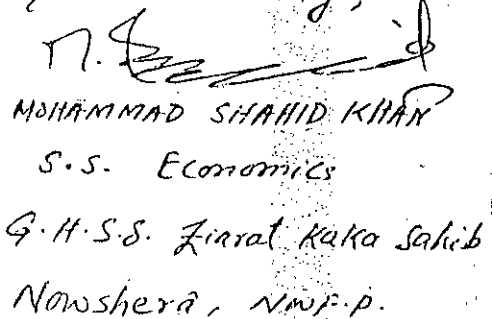 MOHAMMAD SHAHID KHAN
S.S. Economics
G.H.S.S. Ziarat Kaka Sahib
Nowshera, NWF.P.